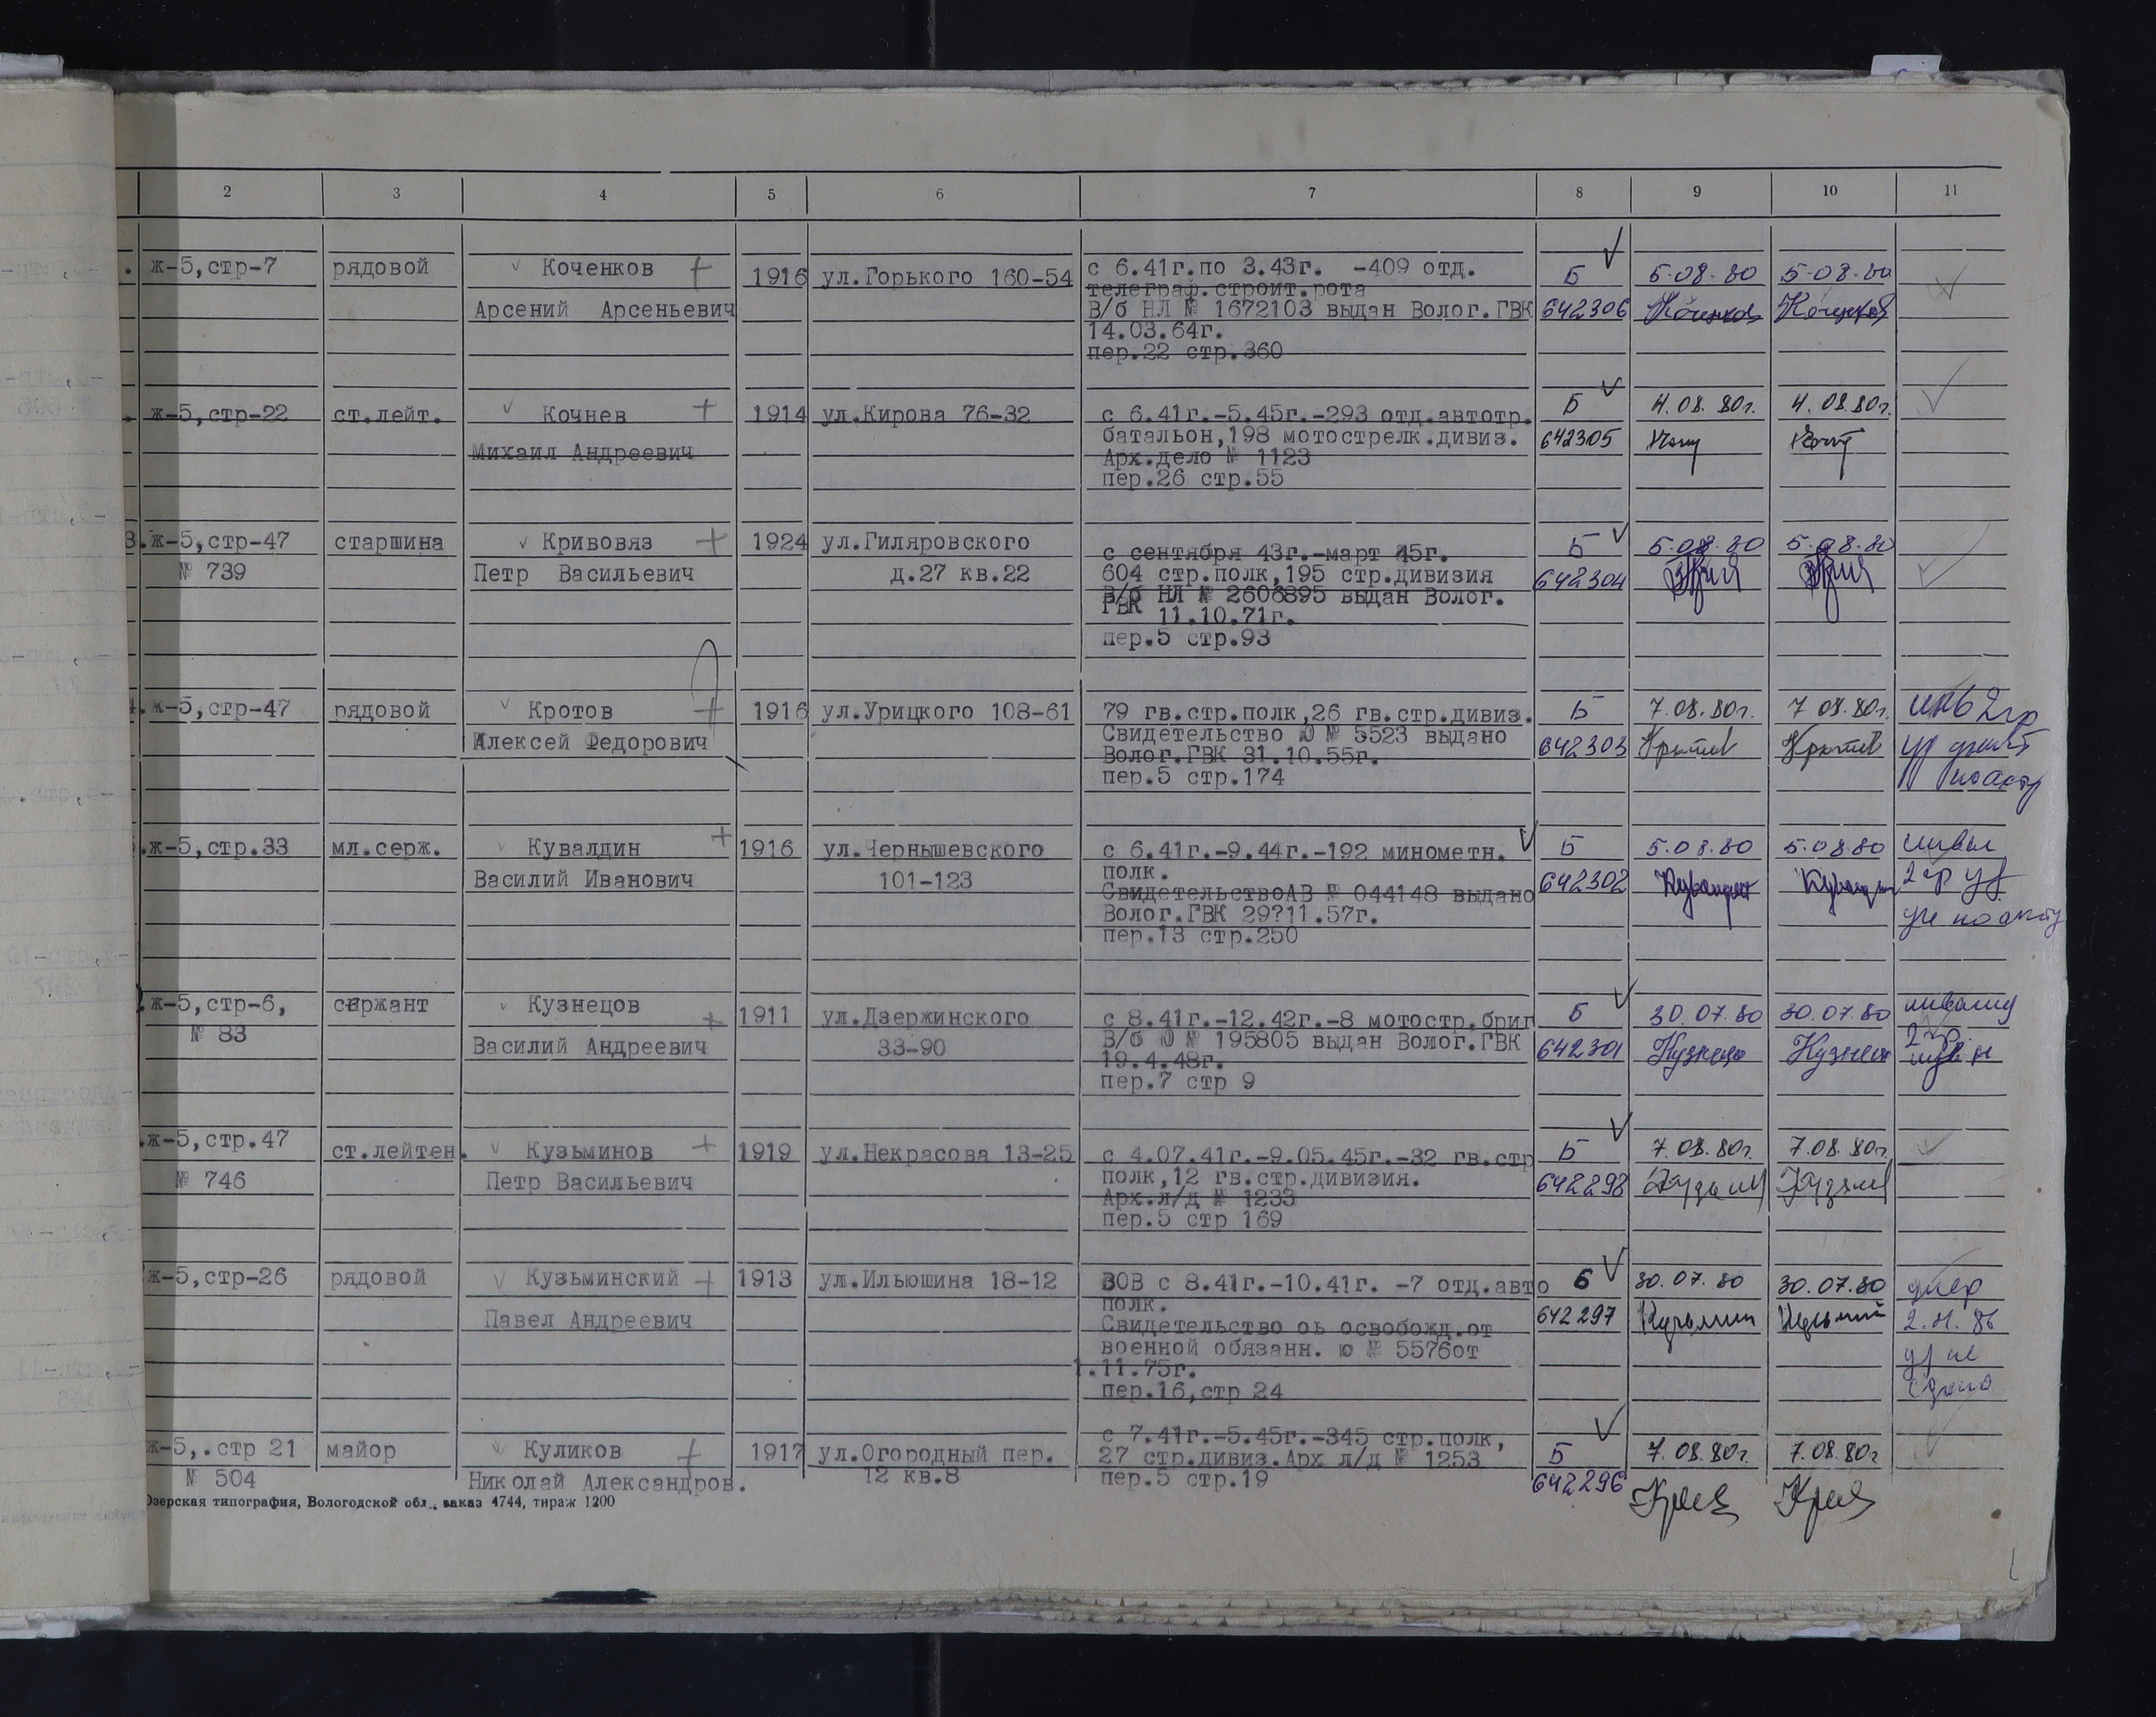 2 3 4 5 6 7 8 9 10 11
. ж-5,стр-7 рядовой Коченков 1916 ул.Горького 160-54 с 6.41г.по 3.43г. -409 отд. Б 5.08.80 5.08.80
телеграф.строит.рота
Арсений Арсеньевич В/б НЛ № 1672103 выдан Волог.ГВК 642306 Коченков Коченков
14.03.64г.
пер.22 стр.360
. ж-5,стр-22 ст.лейт. Кочнев 1914 ул.Кирова 76-32 с 6.41г.-5.45г.-293 отд.автотр. Б 4.08.80г. 4.08.80г.
батальон,198 мотострелк.дивиз. 642305
Михаил Андреевич Арх.дело № 1123
пер.26 стр.55
3. ж-5,стр-47 старшина Кривовяз 1924 ул.Гиляровского с сентября 43г.-март 45г. Б 5.08.80 5.08.80
№ 739 Петр Васильевич д.27 кв.22 604 стр.полк,195 стр.дивизия 642304
В/б НЛ № 2606895 выдан Волог.
ГВК 11.10.71г.
пер.5 стр.93
4. ж-5,стр-47 рядовой Кротов 1916 ул.Урицкого 108-61 79 гв.стр.полк,26 гв.стр.дивиз. Б 7.08.80г. 7 08.80г. инв 2гр
Алексей Федорович Свидетельство Ю № 5523 выдано 642303 Кротов Кротов
Волог.ГВК 31.10.55г. по акту
пер.5 стр.174
.ж-5,стр.33 мл.серж. Кувалдин 1916 ул.Чернышевского с 6.41г.-9.44г.-192 минометн. Б 5.08.80 5.08.80
Василий Иванович 101-123 полк. 642302 2гр уд
СвидетельствоАВ № 044148 выдано
Волог.ГВК 29?11.57г. по акту
пер.13 стр.250
ж-5,стр-6, сержант Кузнецов 1911 ул.Дзержинского с 8.41г.-12.42г.-8 мотостр.бриг Б 30.07.80 30.07.80
№ 83 Василий Андреевич 33-90 В/б Ю № 195805 выдан Волог.ГВК 642301 Кузнецо Кузнецо 2гр.
19.4.48г.
пер.7 стр 9
.ж-5,стр.47 ст.лейтен. Кузьминов 1919 ул.Некрасова 13-25 с 4.07.41г.-9.05.45г.-32 гв.стр Б 7.08.80г. 7.08.80г.
№ 746 Петр Васильевич полк,12 гв.стр.дивизия. 642298
Арх.л/д № 1233
пер.5 стр 169
ж-5,стр-26 рядовой Кузьминский 1913 ул.Ильюшина 18-12 ВОВ с 8.41г.-10.41г. -7 отд.авто Б 30.07.80 30.07.80 умер
Павел Андреевич полк. 642297
Свидетельство оь освобожд.от
военной обязанн. ю № 5576от
1.11.75г.
пер.16,стр 24
ж-5,.стр 21 майор Куликов 1917 ул.Огородный пер. с 7.41г.-5.45г.-345 стр.полк, Б 7.08.80г. 7.08.80г
№ 504 Николай Александров. 12 кв.8 27 стр.дивиз.Арх л/д № 1253 642296
пер.5 стр.19
Озерская типография, Вологодской обл., заказ 4744, тираж 1200